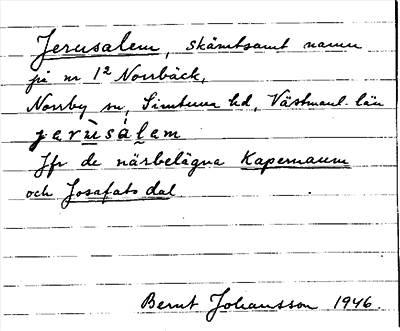 Jerusalem, skämtsamt namn
på nr 12 Norrbäck,
Norrby sn, Simtuna hd, Västmanl. län
jerùsálem
Jfr de närbelägna Kapernaum
och Josafats dal
Bernt Johansson 1946.